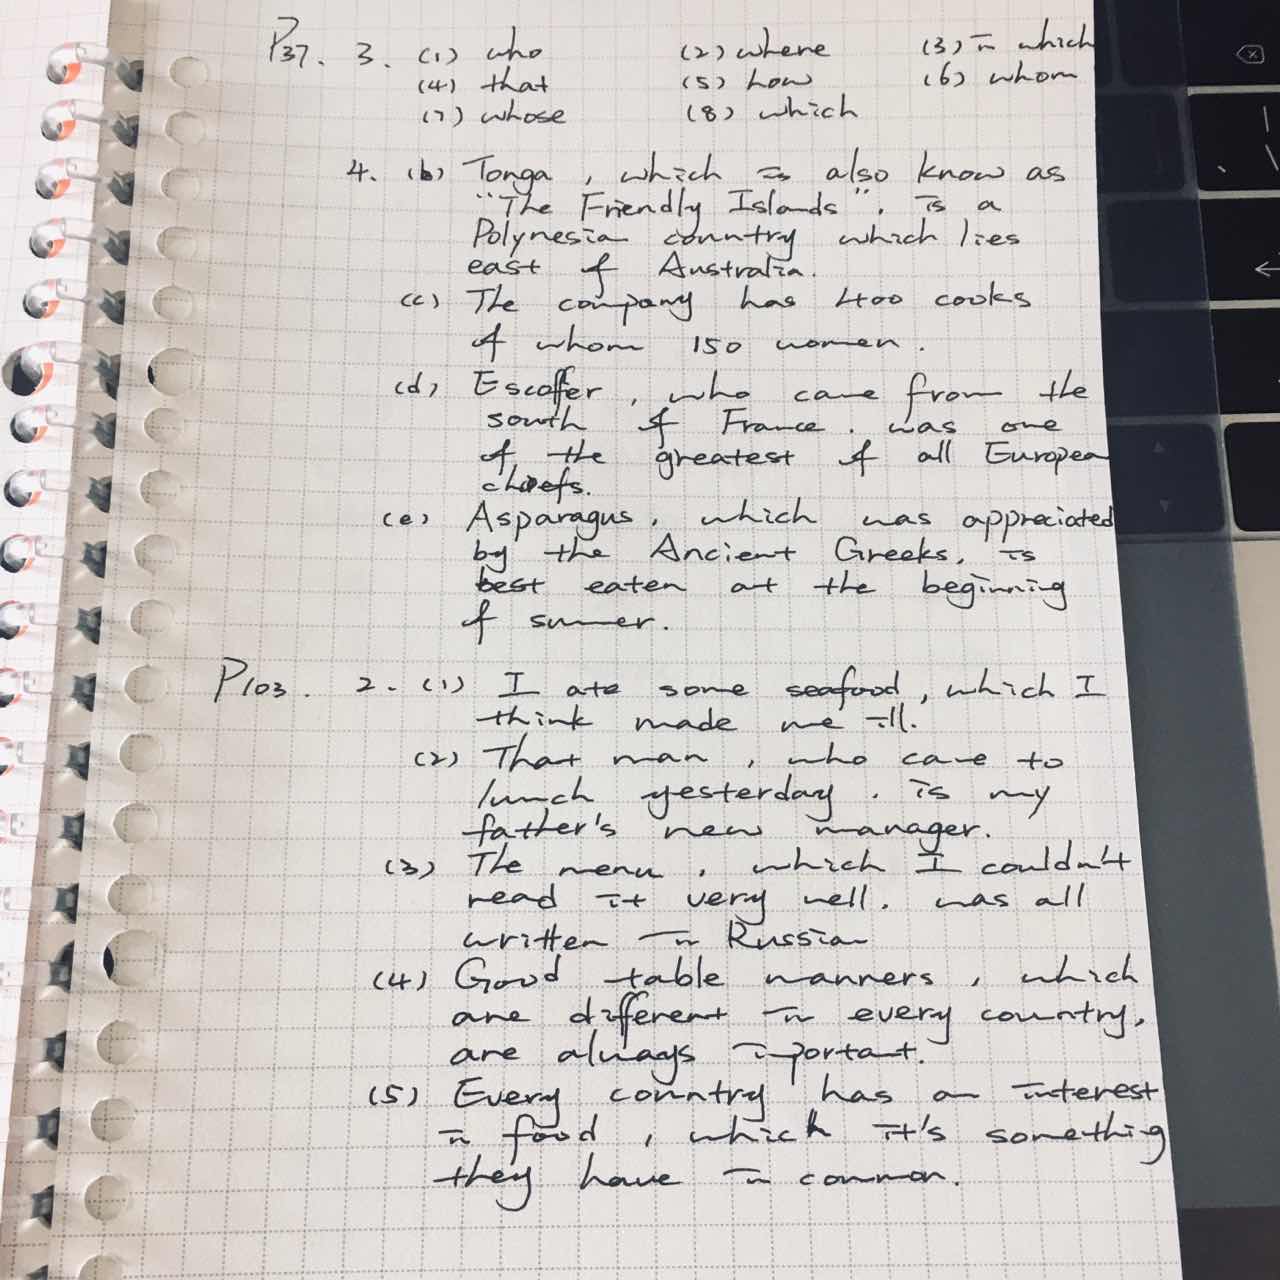 P37. 3. (1) who (2) where (3) in which
(4) that (5) how (6) whom
(7) whose (8) which
4. (b) Tonga, which is also know as
"The Friendly Islands", is a
Polynesia country which lies
east of Australia.
(c) The company has 400 cooks
of whom 150 women.
(d) Escoffer, who came from the
south of France, was one
of the greatest of all European
chefs.
(e) Asparagus, which was appreciated
by the Ancient Greeks, is
best eaten at the beginning
of summer.
P103. 2. (1) I ate some seafood, which I
think made me ill.
(2) That man, who came to
lunch yesterday, is my
father's new manager.
(3) The menu, which I couldn't
read it very well, was all
written in Russian
(4) Good table manners, which
are different in every country,
are always important.
(5) Every country has an interest
in food, which it's something
they have in common.